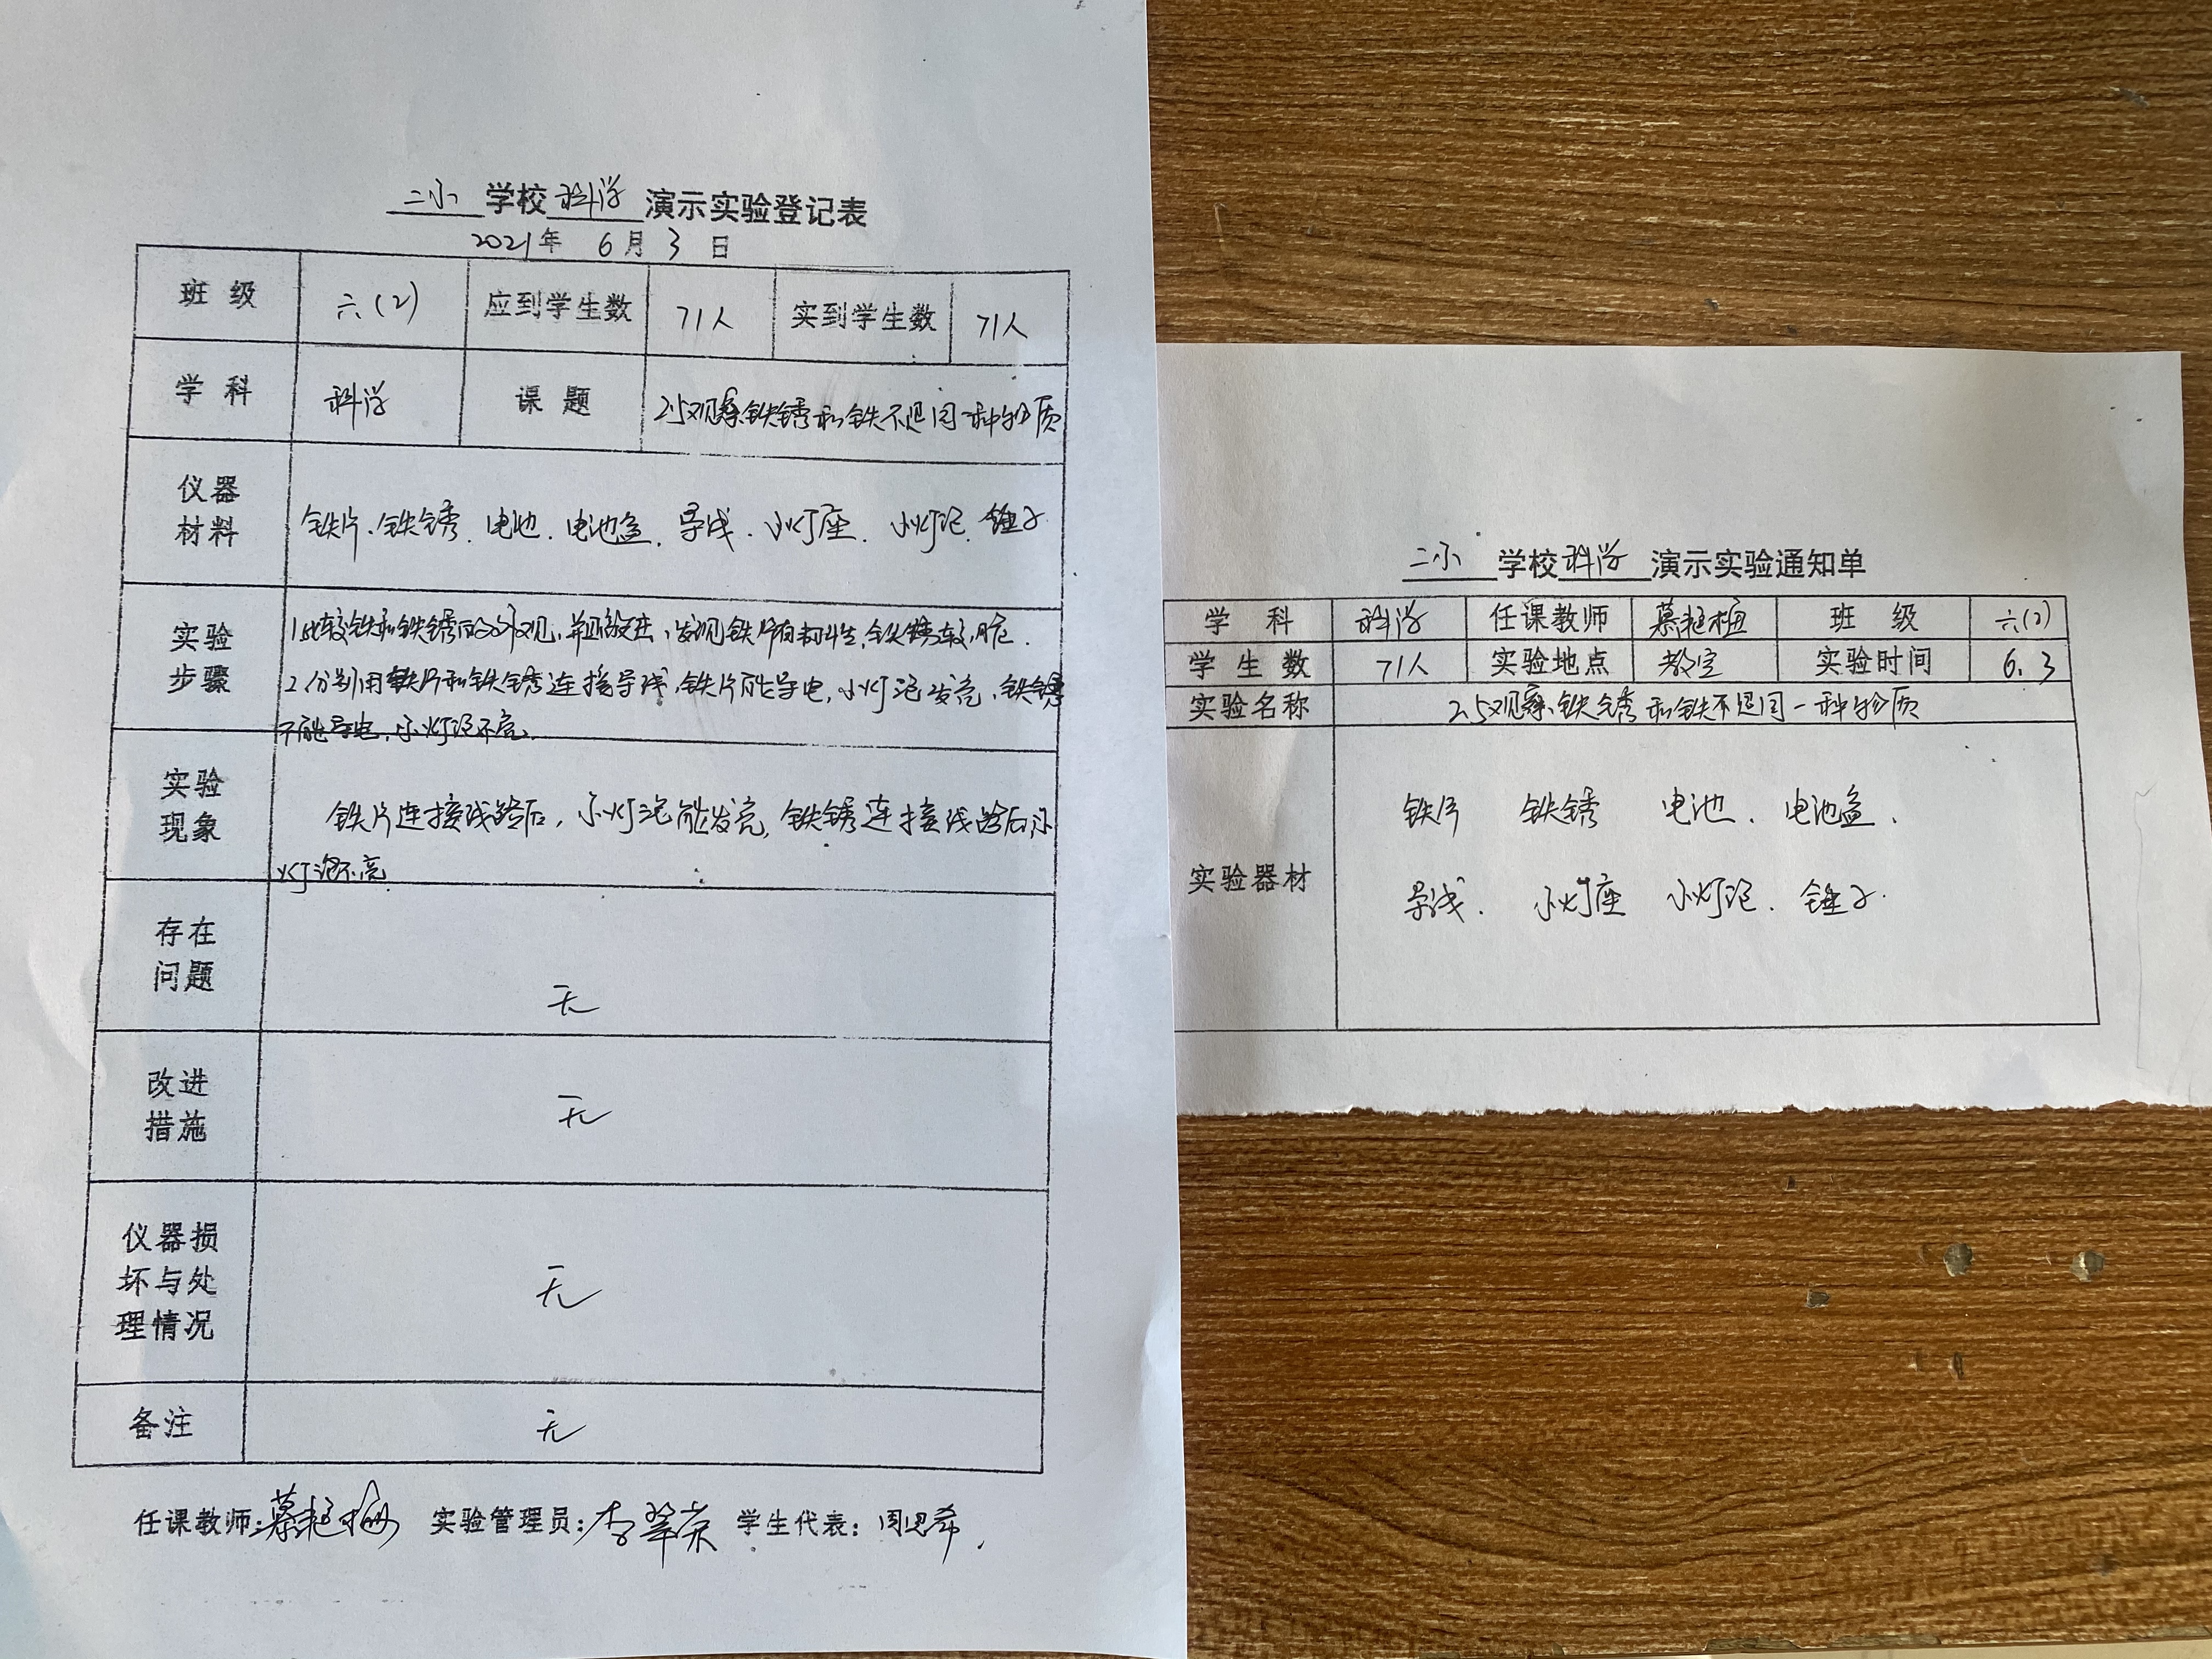 二小 学校 科学 演示实验登记表
2021年 6月 3日
班 级 六(2) 应到学生数 71人 实到学生数 71人
学 科 科学 课 题 2.5观察铁锈和铁不是同一种物质
仪器
材料
铁片、铁锈、电池、电池盒、导线、小灯座、小灯泡、锤子
实验
步骤
1.比较铁和铁锈的外观,并且敲击,发现铁片有韧性,铁锈较脆.
2.分别用铁片和铁锈连接导线,铁片能导电,小灯泡发亮,铁锈
不能导电,小灯泡不亮.
实验
现象
铁片连接线路后,小灯泡能发亮,铁锈连接线路后,小
灯泡不亮
存在
问题
无
改进
措施
无
仪器损
坏与处
理情况
无
备注
无
任课教师:慕艳梅 实验管理员:李翠荣 学生代表:周思希
二小 学校 科学 演示实验通知单
学 科 科学 任课教师 慕艳梅 班 级 六(2)
学 生 数 71人 实验地点 教室 实验时间 6.3
实验名称 2.5观察铁锈和铁不是同一种物质
实验器材
铁片 铁锈 电池. 电池盒.
导线. 小灯座 小灯泡. 锤子.